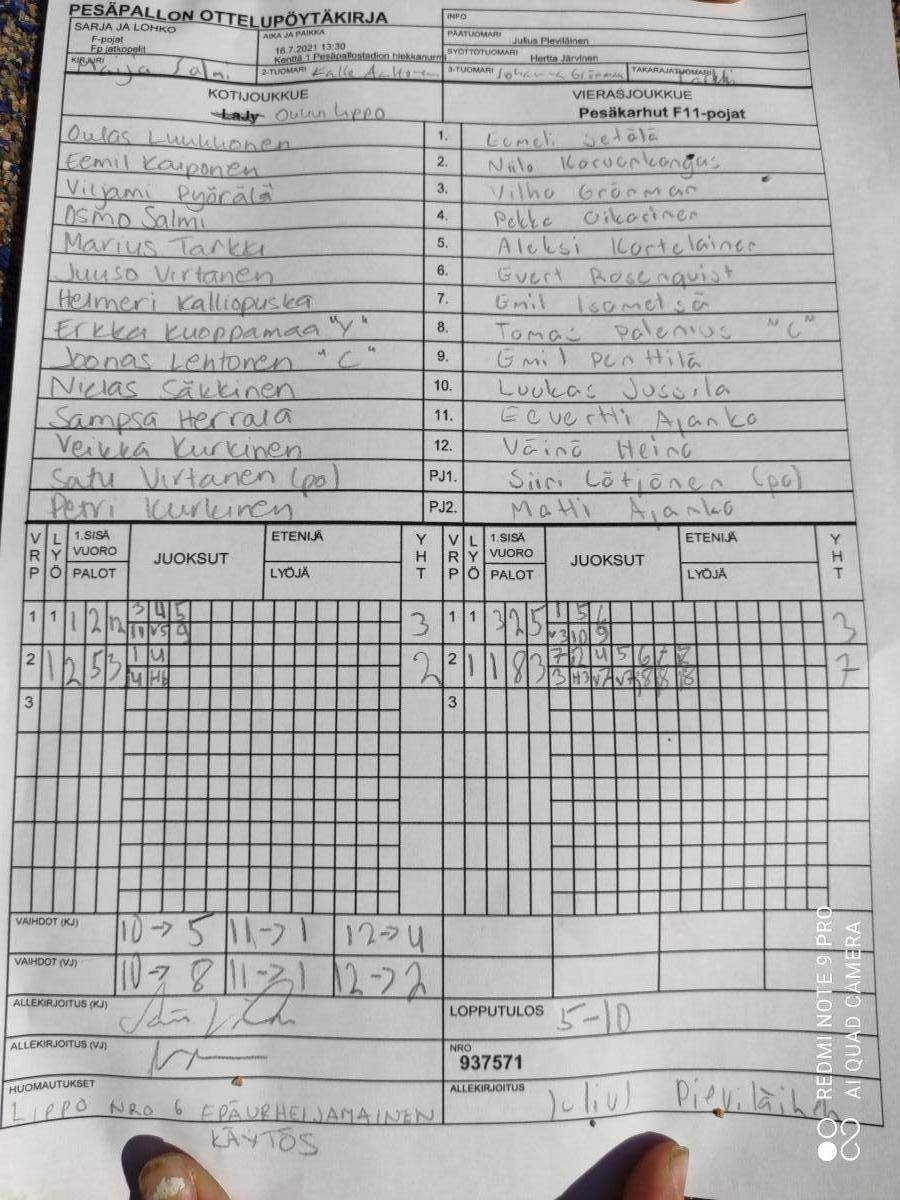 PESÄPALLON OTTELUPÖYTÄKIRJA
SARJA JA LOHKO
F-pojat
Fp jatkopelit
AIKA JA PAIKKA
16.7.2021 13:30
Kenttä 1 Pesäpallostadion hiekkanurmi
INFO
PÄÄTUOMARI Julius Pieviläinen
SYÖTTÖTUOMARI Hertta Järvinen
KIRJURI Maija Salmi
2-TUOMARI Kalle Aaltonen
3-TUOMARI Johanna Grönman
TAKARAJATUOMARI
KOTIJOUKKUE
LaJy Oulun Lippo
VIERASJOUKKUE
Pesäkarhut F11-pojat
Oulas Luukkonen 1. Eemeli Setälä
Eemil Kauponen 2. Niilo Korvenkangas
Viljami Pyörälä 3. Vilho Grönman
Osmo Salmi 4. Pekka Oikarinen
Marius Tarkka 5. Aleksi Kortelainen
Juuso Virtanen 6. Evert Rosenqvist
Helmeri Kalliopuska 7. Emil Isometsä
Erkka Kuoppamaa "Y" 8. Tomas Palenius "C"
Joonas Lehtonen "C" 9. Emil Penttilä
Niclas Säkkinen 10. Luukas Jussila
Sampsa Herrala 11. Eevertti Ajanko
Veikka Kurkinen 12. Väinö Heino
Satu Virtanen (po) PJ1. Siiri Lötjönen (po)
Petri Kurkinen PJ2. Matti Ajanko
VRP LYÖ 1.SISÄ VUORO PALOT JUOKSUT ETENIJÄ LYÖJÄ YHT VRP LYÖ 1.SISÄ VUORO PALOT JUOKSUT ETENIJÄ LYÖJÄ YHT
1 1 1 2 12 3 4 5 3 1 1 3 2 5 1 5 6 3
11 V5 9 V3 10 9
2 1 2 5 3 1 4 2 2 1 1 8 3 7 12 4 5 6 7 8 7
4 H6 3 H3 V7 V7 8 8 8
3 3
VAIHDOT (KJ) 10→5 11→1 12→4
VAIHDOT (VJ) 10→8 11→1 12→2
ALLEKIRJOITUS (KJ)
LOPPUTULOS 5-10
ALLEKIRJOITUS (VJ)
NRO
937571
HUOMAUTUKSET
LIPPO NRO 6 EPÄURHEILJAMAINEN
KÄYTÖS
ALLEKIRJOITUS Julius Pieviläinen
REDMI NOTE 9 PRO
AI QUAD CAMERA